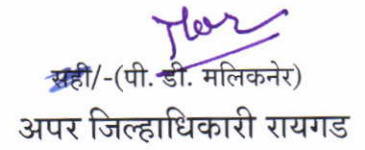 सही/-(पी. डी. मलिकनेर)
अपर जिल्हाधिकारी रायगड